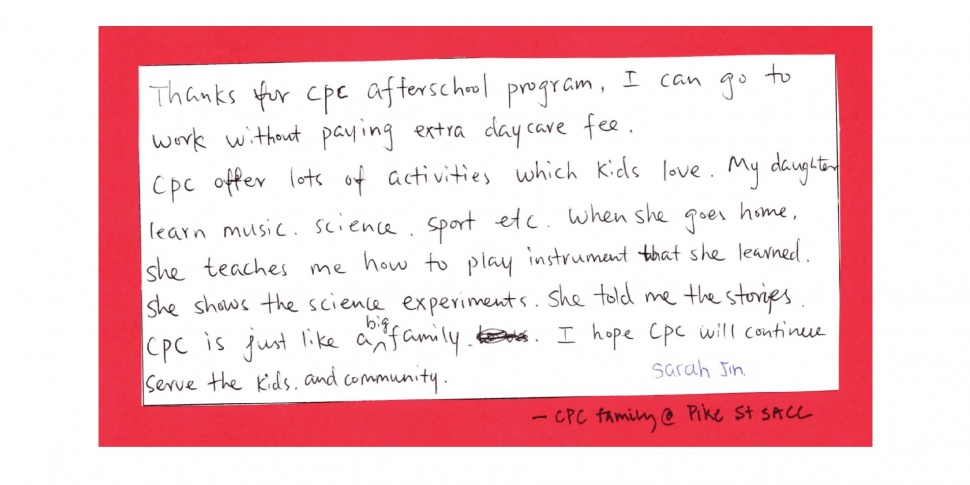 Thanks for CPC afterschool program, I can go to
work without paying extra daycare fee.
CPC offer lots of activities which kids love. My daughter
learn music. science. sport etc. When she goes home,
she teaches me how to play instrument that she learned.
She shows the science experiments. She told me the stories.
CPC is just like a big family. . I hope CPC will continue
serve the kids. and community.
Sarah Jin
— CPC family @ Pike St SACC